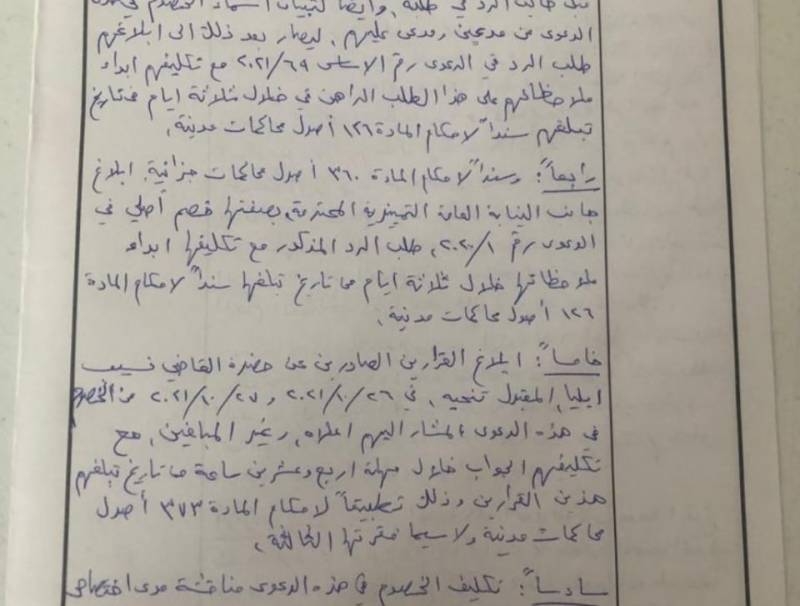 قبل طالب الرد في طلبه، وأيضاً لتبيان أسماء الخصوم في
الدعوى من مدعين ومدعى عليهم، ليصار بعد ذلك الى ابلاغهم
طلب الرد في الدعوى رقم الاساس ٢٠٢١/٦٩ مع تكليفهم ابداء
ملاحظاتهم على هذا الطلب الراهن في خلال ثلاثة ايام من تاريخ
تبلغهم سنداً لاحكام المادة ١٢٦ أصول محاكمات مدنية.
رابعاً: وسنداً لاحكام المادة ٣٦٠ أصول محاكمات جزائية، ابلاغ
جانب النيابة العامة التمييزية المحترمة، بصفتها خصم أصلي في
الدعوى رقم ٢٠٢٠/١، طلب الرد المذكور مع تكليفها ابداء
ملاحظاتها خلال ثلاثة ايام من تاريخ تبلغها سنداً لاحكام المادة
١٢٦ أصول محاكمات مدنية.
خامساً: ابلاغ القرارين الصادرين عن حضرة القاضي نسيب
ايليا، المقبول تنحيه، في ٢٠٢١/١٠/٢٦ و ٢٠٢١/١٠/٢٧ من الخصوم
في هذه الدعوى المشار اليهم اعلاه، وغير المبلغين، مع
تكليفهم الجواب خلال مهلة اربع وعشرين ساعة من تاريخ تبلغهم
هذين القرارين وذلك تطبيقاً لاحكام المادة ٣٧٣ أصول
محاكمات مدنية ولا سيما فقرتها الثالثة.
سادساً: تكليف الخصوم في هذه الدعوى مناقشة مدى اختصاص